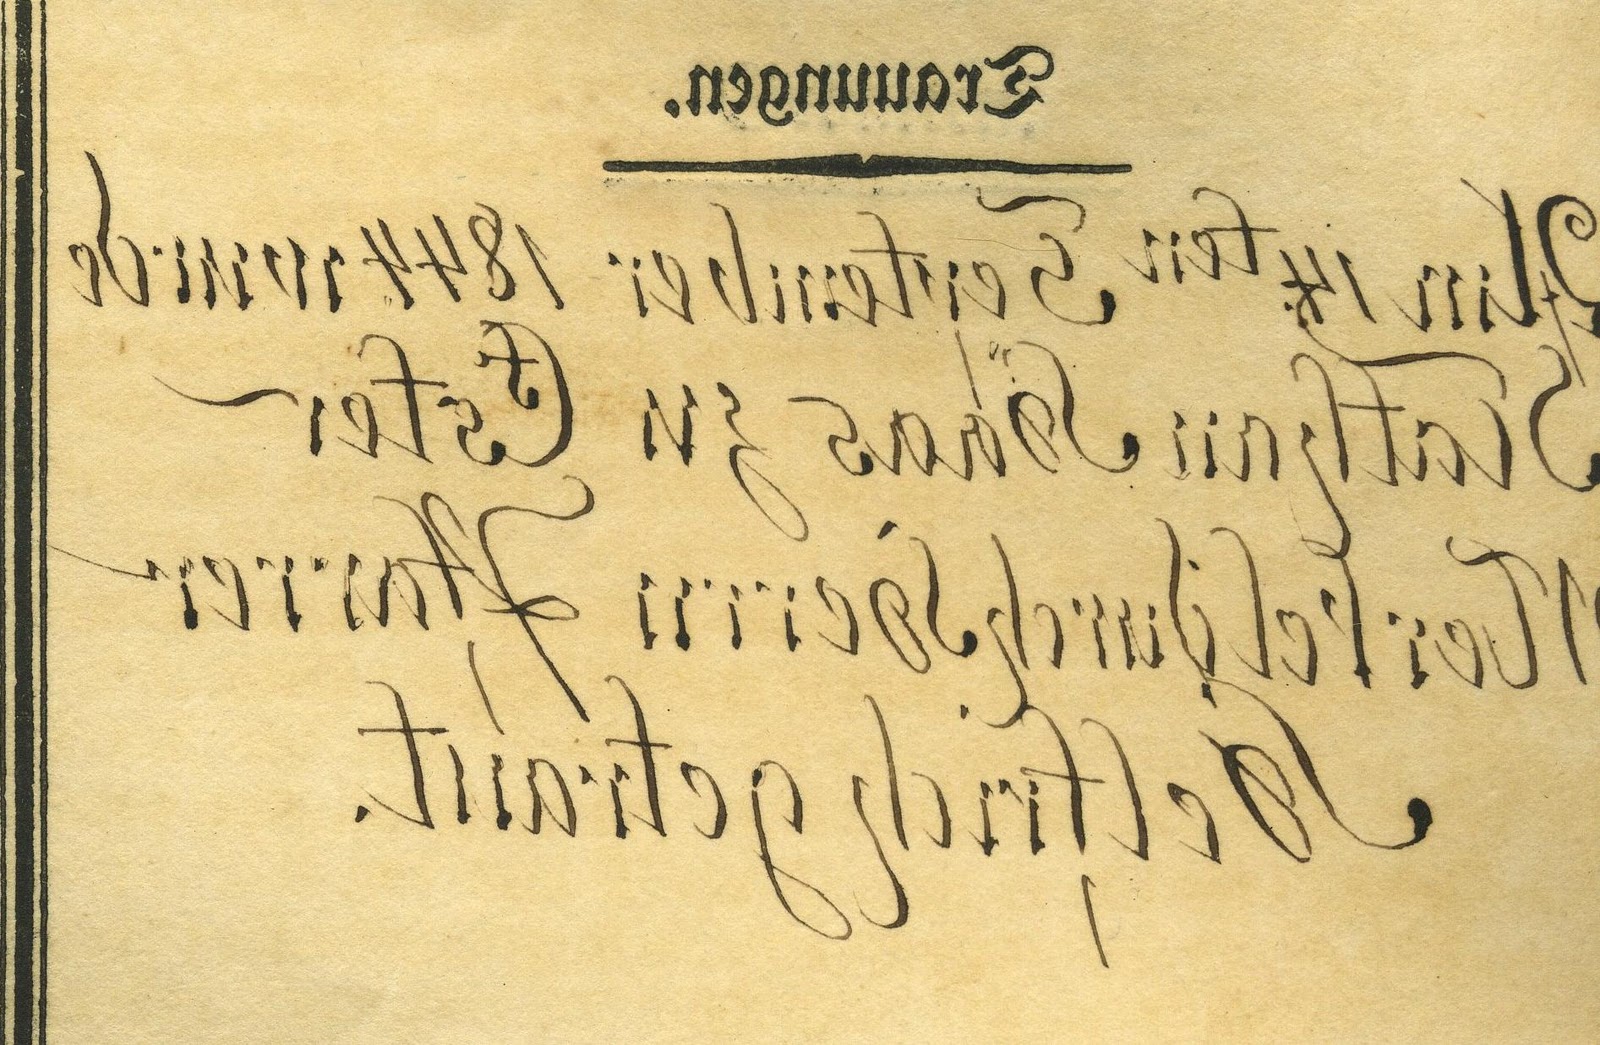 Trauungen.
Am 14ten September 1844 wurde
Nathan Haas zu Ester
Merkel durch Herrn Pfarrer
Helfrich getraut.